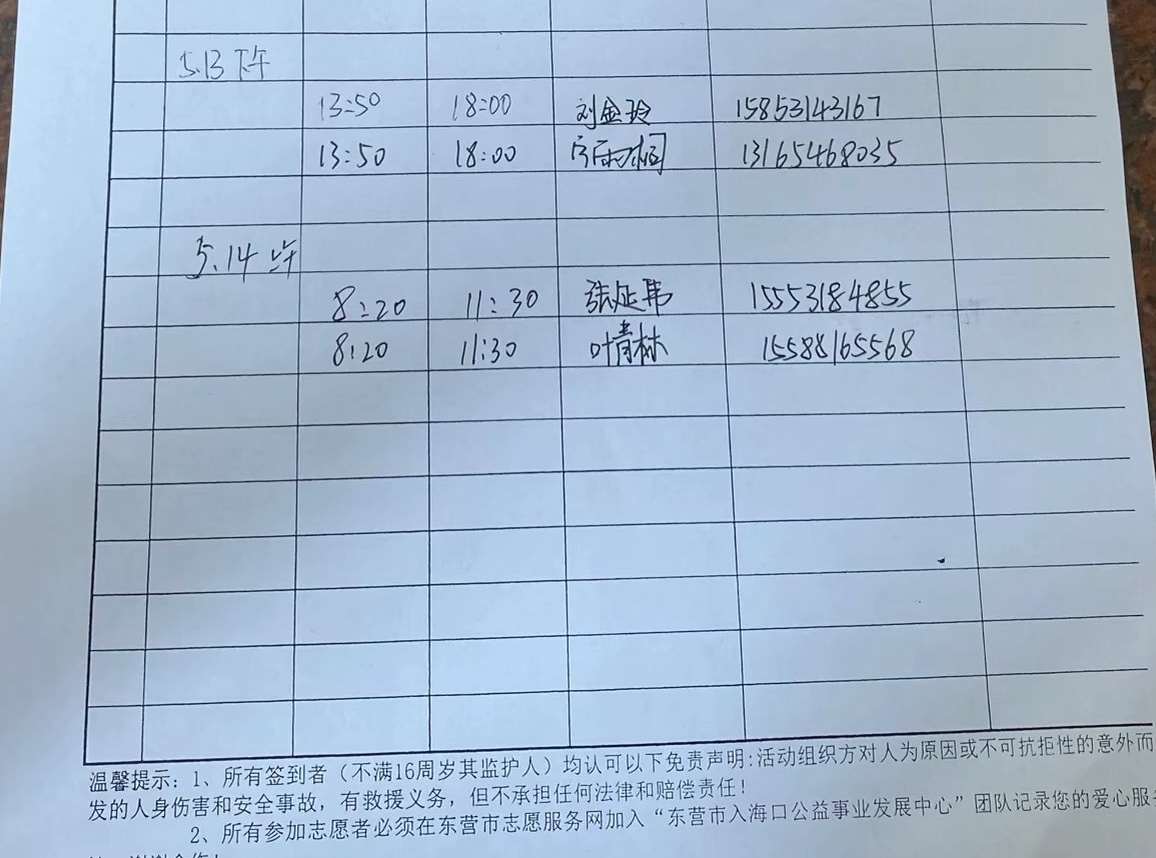 5.13 下午
13:50 18:00 刘金玲 15853143167
13:50 18:00 15165468035
5.14 上午
8:20 11:30 张延伟 15553184855
8:20 11:30 叶青林 15588165568
温馨提示：1、所有签到者（不满16周岁其监护人）均认可以下免责声明:活动组织方对人为原因或不可抗拒性的意外而
发的人身伤害和安全事故，有救援义务，但不承担任何法律和赔偿责任！
2、所有参加志愿者必须在东营市志愿服务网加入“东营市入海口公益事业发展中心”团队记录您的爱心服